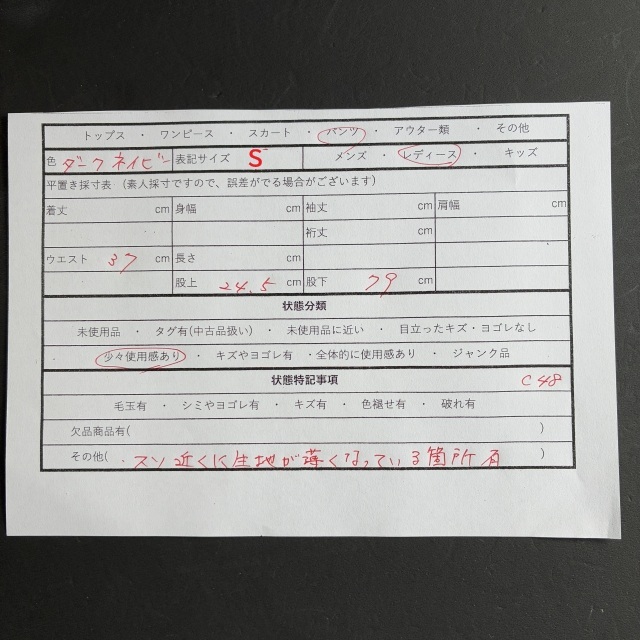 トップス ・ ワンピース ・ スカート ・ パンツ ・ アウター類 ・ その他
色 ダークネイビー 表記サイズ S メンズ ・ レディース ・ キッズ
平置き採寸表 (素人採寸ですので、誤差がでる場合がございます)
着丈 cm 身幅 cm 袖丈 cm 肩幅 cm
裄丈 cm
ウエスト 37 cm 長さ cm
股上 24.5 cm 股下 79 cm
状態分類
未使用品 ・ タグ有(中古品扱い) ・ 未使用品に近い ・ 目立ったキズ・ヨゴレなし
少々使用感あり ・ キズやヨゴレ有 ・全体的に使用感あり ・ ジャンク品
状態特記事項 C48
毛玉有 ・ シミやヨゴレ有 ・ キズ有 ・ 色褪せ有 ・ 破れ有
欠品商品有( )
その他( . スソ近くに生地が薄くなっている箇所有 )